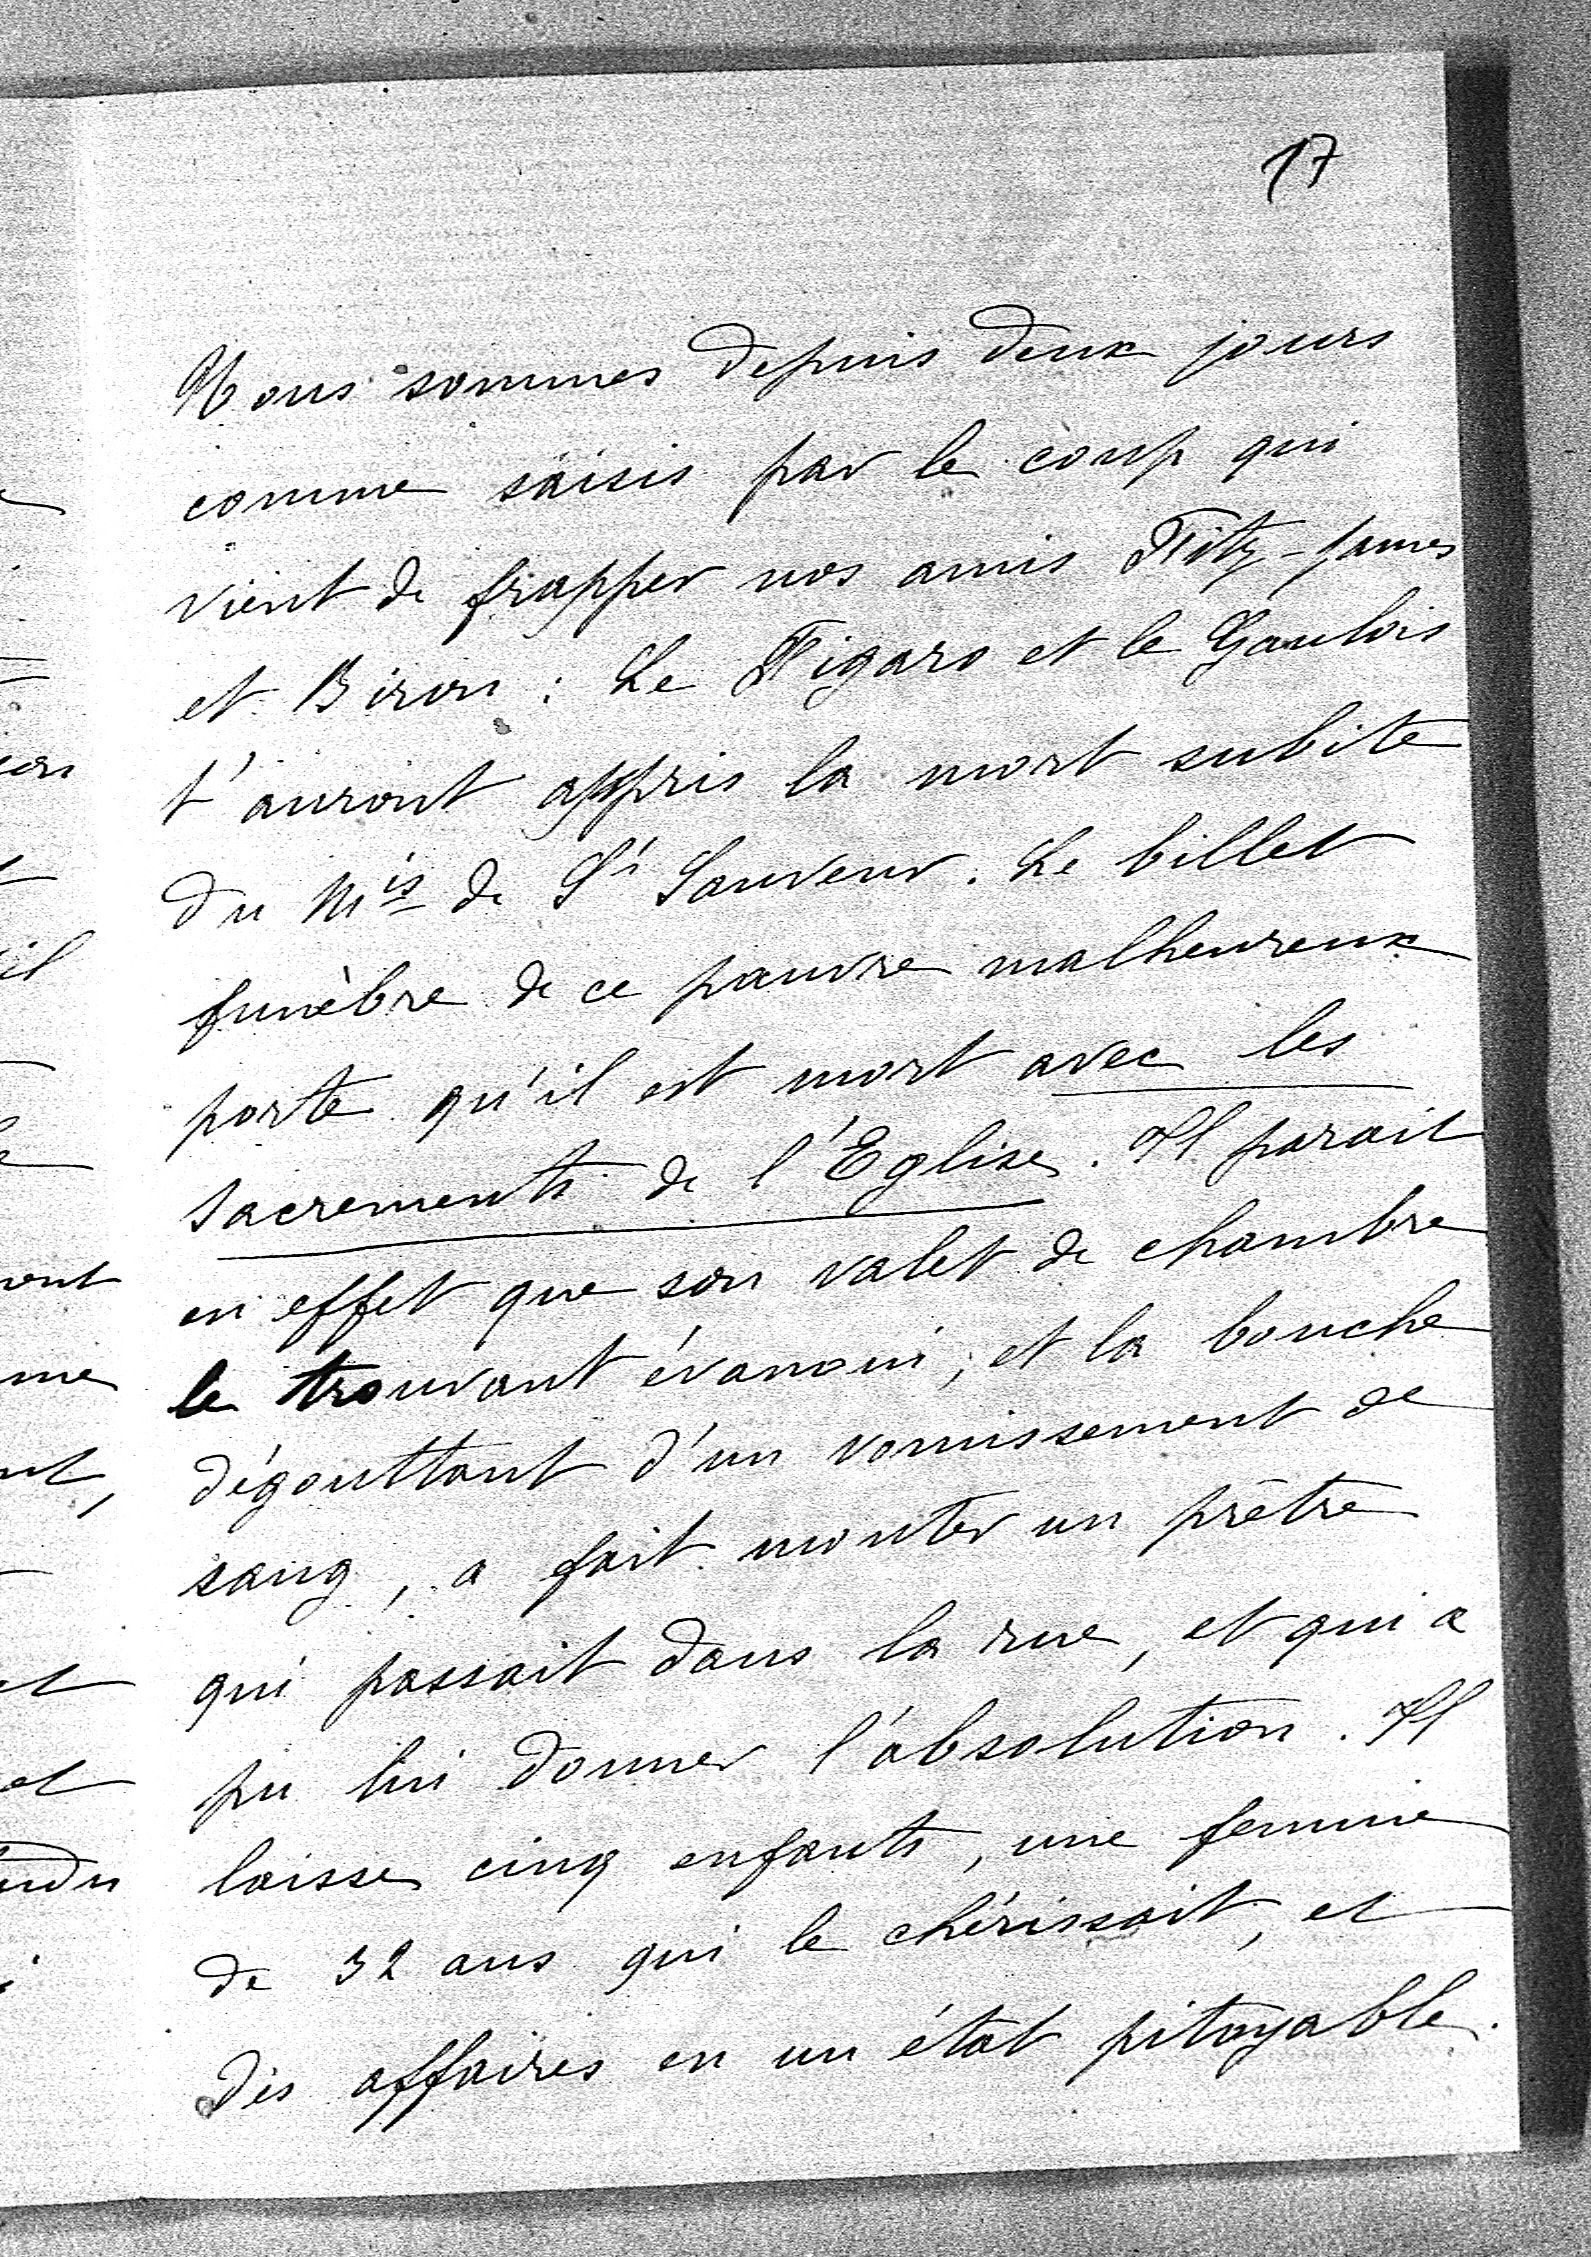 17
Nous sommes depuis deux jours
comme saisis par le coup qui
vient de frapper nos amis Fitz-James
et Biron : Le Figaro et le Gaulois
t'auront appris la mort subite
du Mis de St Sauveur. Le billet
funèbre de ce pauvre malheureux
porte qu'il est mort avec les
sacrements de l'Eglise. Il parait
en effet que son valet de chambre
le trouvant évanoui, et la bouche
dégouttant d'un vomissement de
sang, a fait monter un prêtre
qui passait dans la rue, et qui a
pu lui donner l'absolution. Il
laisse cinq enfants, une femme
de 32 ans qui le chérissait, et
des affaires en un état pitoyable.